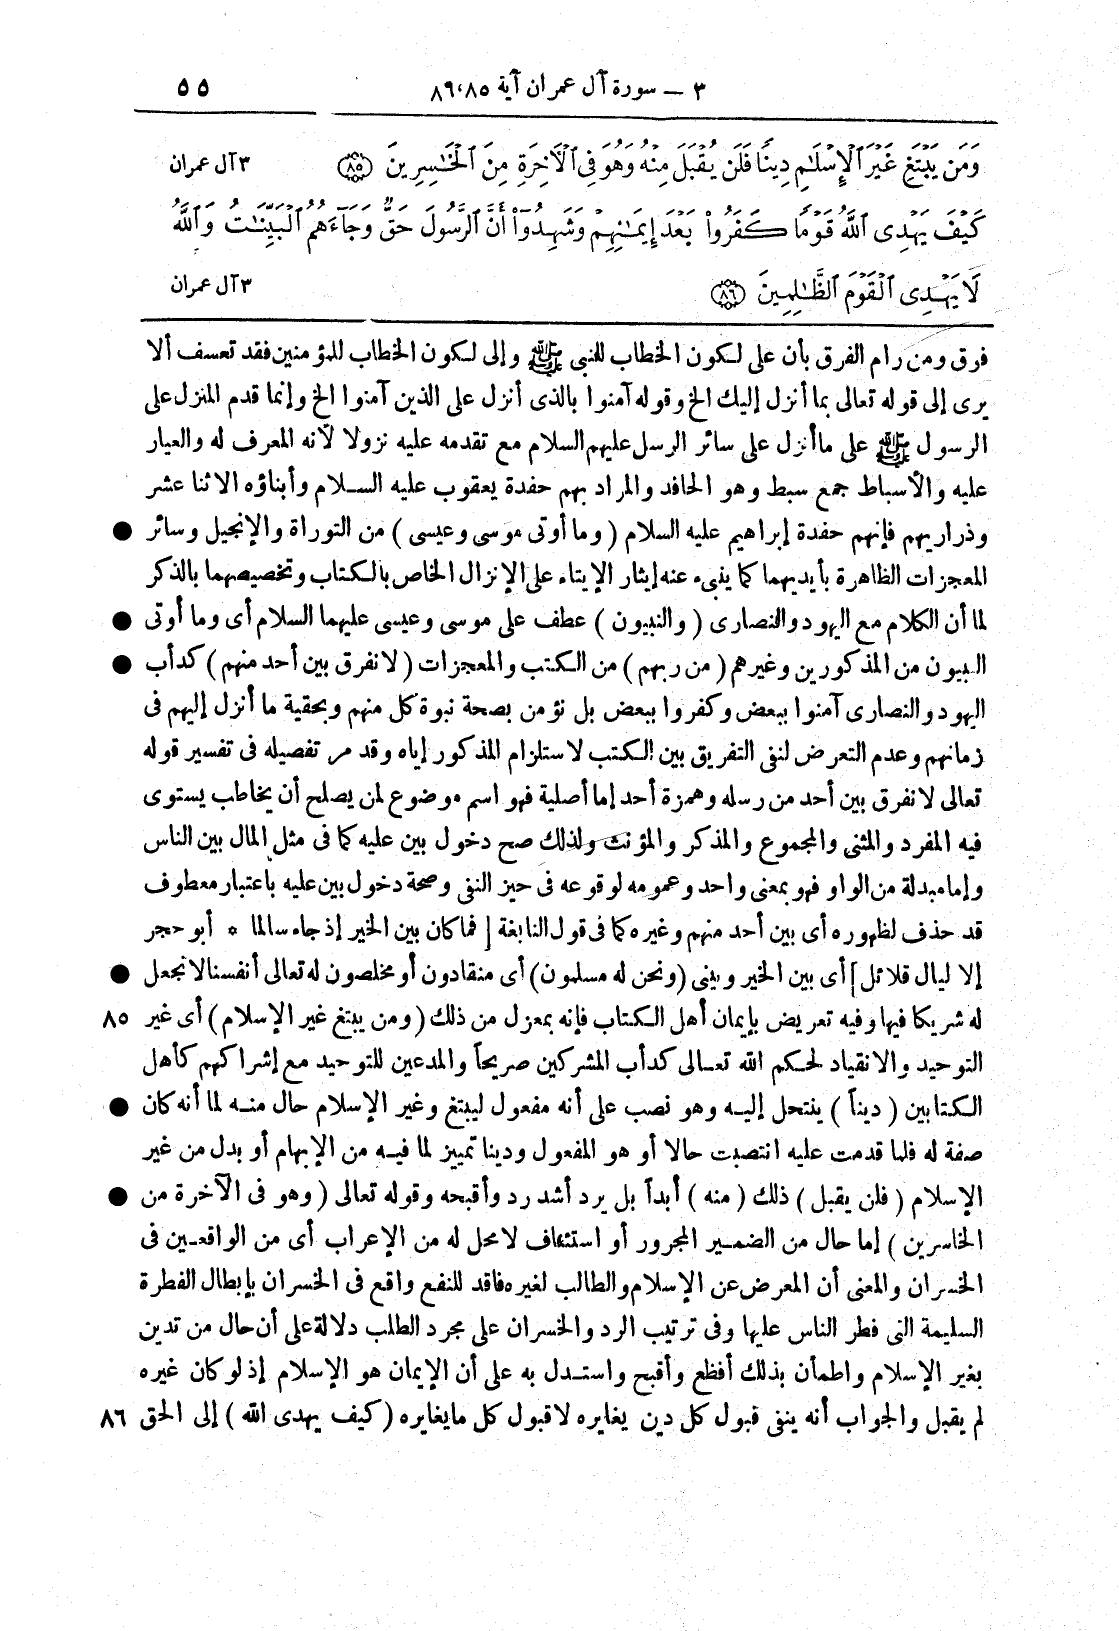 ٣ – سورة آل عمران آية ٨٥،٨٦ ٥٥
وَمَن يَبْتَغِ غَيْرَ ٱلْإِسْلَٰمِ دِينًا فَلَن يُقْبَلَ مِنْهُ وَهُوَ فِى ٱلْأَخِرَةِ مِنَ ٱلْخَٰسِرِينَ ٨٥ ٣ آل عمران
كَيْفَ يَهْدِى ٱللَّهُ قَوْمًا كَفَرُوا۟ بَعْدَ إِيمَٰنِهِمْ وَشَهِدُوٓا۟ أَنَّ ٱلرَّسُولَ حَقٌّ وَجَآءَهُمُ ٱلْبَيِّنَٰتُ وَٱللَّهُ
لَا يَهْدِى ٱلْقَوْمَ ٱلظَّٰلِمِينَ ٨٦ ٣ آل عمران
فرق ومن رام الفرق بأن على لكون الخطاب للنبى ﷺ وإلى لكون الخطاب للمؤمنين فقد تعسف ألا
يرى إلى قوله تعالى بما أنزل إليك الخ وقوله آمنوا بالذى أنزل على الذين آمنوا الخ وإنما قدم المنزل على
الرسول ﷺ على ما أنزل على سائر الرسل عليهم السلام مع تقدمه عليه نزولا لأنه المعرف له والعيار
عليه والأسباط جمع سبط وهو الحافد والمراد بهم حفدة يعقوب عليه السلام وأبناؤه الاثنا عشر
وذراريهم فإنهم حفدة إبراهيم عليه السلام ( وما أوتى موسى وعيسى ) من التوراة والإنجيل وسائر ●
المعجزات الظاهرة بأيديهما كما ينبىء عنه إيثار الإيتاء على الإنزال الخاص بالكتاب وتخصيصهما بالذكر
لما أن الكلام مع اليهود والنصارى ( والنبيون ) عطف على موسى وعيسى عليهما السلام أى وما أوتى ●
النبيون من المذكورين وغيرهم ( من ربهم ) من الكتب والمعجزات ( لا نفرق بين أحد منهم ) كدأب ●
اليهود والنصارى آمنوا ببعض وكفروا ببعض بل نؤمن بصحة نبوة كل منهم وبحقية ما أنزل إليهم فى
زمانهم وعدم التعرض لنفى التفريق بين الكتب لاستلزام المذكور إياه وقد مر تفصيله فى تفسير قوله
تعالى لا نفرق بين أحد من رسله وهمزة أحد إما أصلية فهو اسم موضوع لمن يصلح أن يخاطب يستوى
فيه المفرد والمثنى والمجموع والمذكر والمؤنث ولذلك صح دخول بين عليه كما فى مثل المال بين الناس
وإما مبدلة من الواو فهو بمعنى واحد وعمومه لوقوعه فى حيز النفى وصحة دخول بين عليه باعتبار معطوف
قد حذف لظهوره أى بين أحد منهم وغيره كما فى قول النابغة [ فما كان بين الخير إذ جاء سالما * أبو حجر
إلا ليال قلائل ] أى بين الخير وبينى ( ونحن له مسلمون ) أى منقادون أو مخلصون له تعالى أنفسنا لا نجعل ●
له شريكا فيها وفيه تعريض بإيمان أهل الكتاب فإنه بمعزل من ذلك ( ومن يبتغ غير الإسلام ) أى غير ٨٥
التوحيد والانقياد لحكم الله تعالى كدأب المشركين صريحاً والمدعين للتوحيد مع إشراكهم كأهل
الكتابين ( ديناً ) ينتحل إليه وهو نصب على أنه مفعول ليبتغ وغير الإسلام حال منه لما أنه كان ●
صفة له فلما قدمت عليه انتصبت حالا أو هو المفعول ودينا تمييز لما فيه من الإبهام أو بدل من غير
الإسلام ( فلن يقبل ) ذلك ( منه ) أبداً بل يرد أشد رد وأقبحه وقوله تعالى ( وهو فى الآخرة من ●
الخاسرين ) إما حال من الضمير المجرور أو استئناف لا محل له من الإعراب أى من الواقعين فى
الخسران والمعنى أن المعرض عن الإسلام والطالب لغيره فاقد للنفع واقع فى الخسران بإبطال الفطرة
السليمة التى فطر الناس عليها وفى ترتيب الرد والخسران على مجرد الطلب دلالة على أن حال من تدين
بغير الإسلام واطمأن بذلك أفظع وأقبح واستدل به على أن الإيمان هو الإسلام إذ لو كان غيره
لم يقبل والجواب أنه ينفى قبول كل دين يغايره لا قبول كل ما يغايره ( كيف يهدى الله ) إلى الحق ٨٦